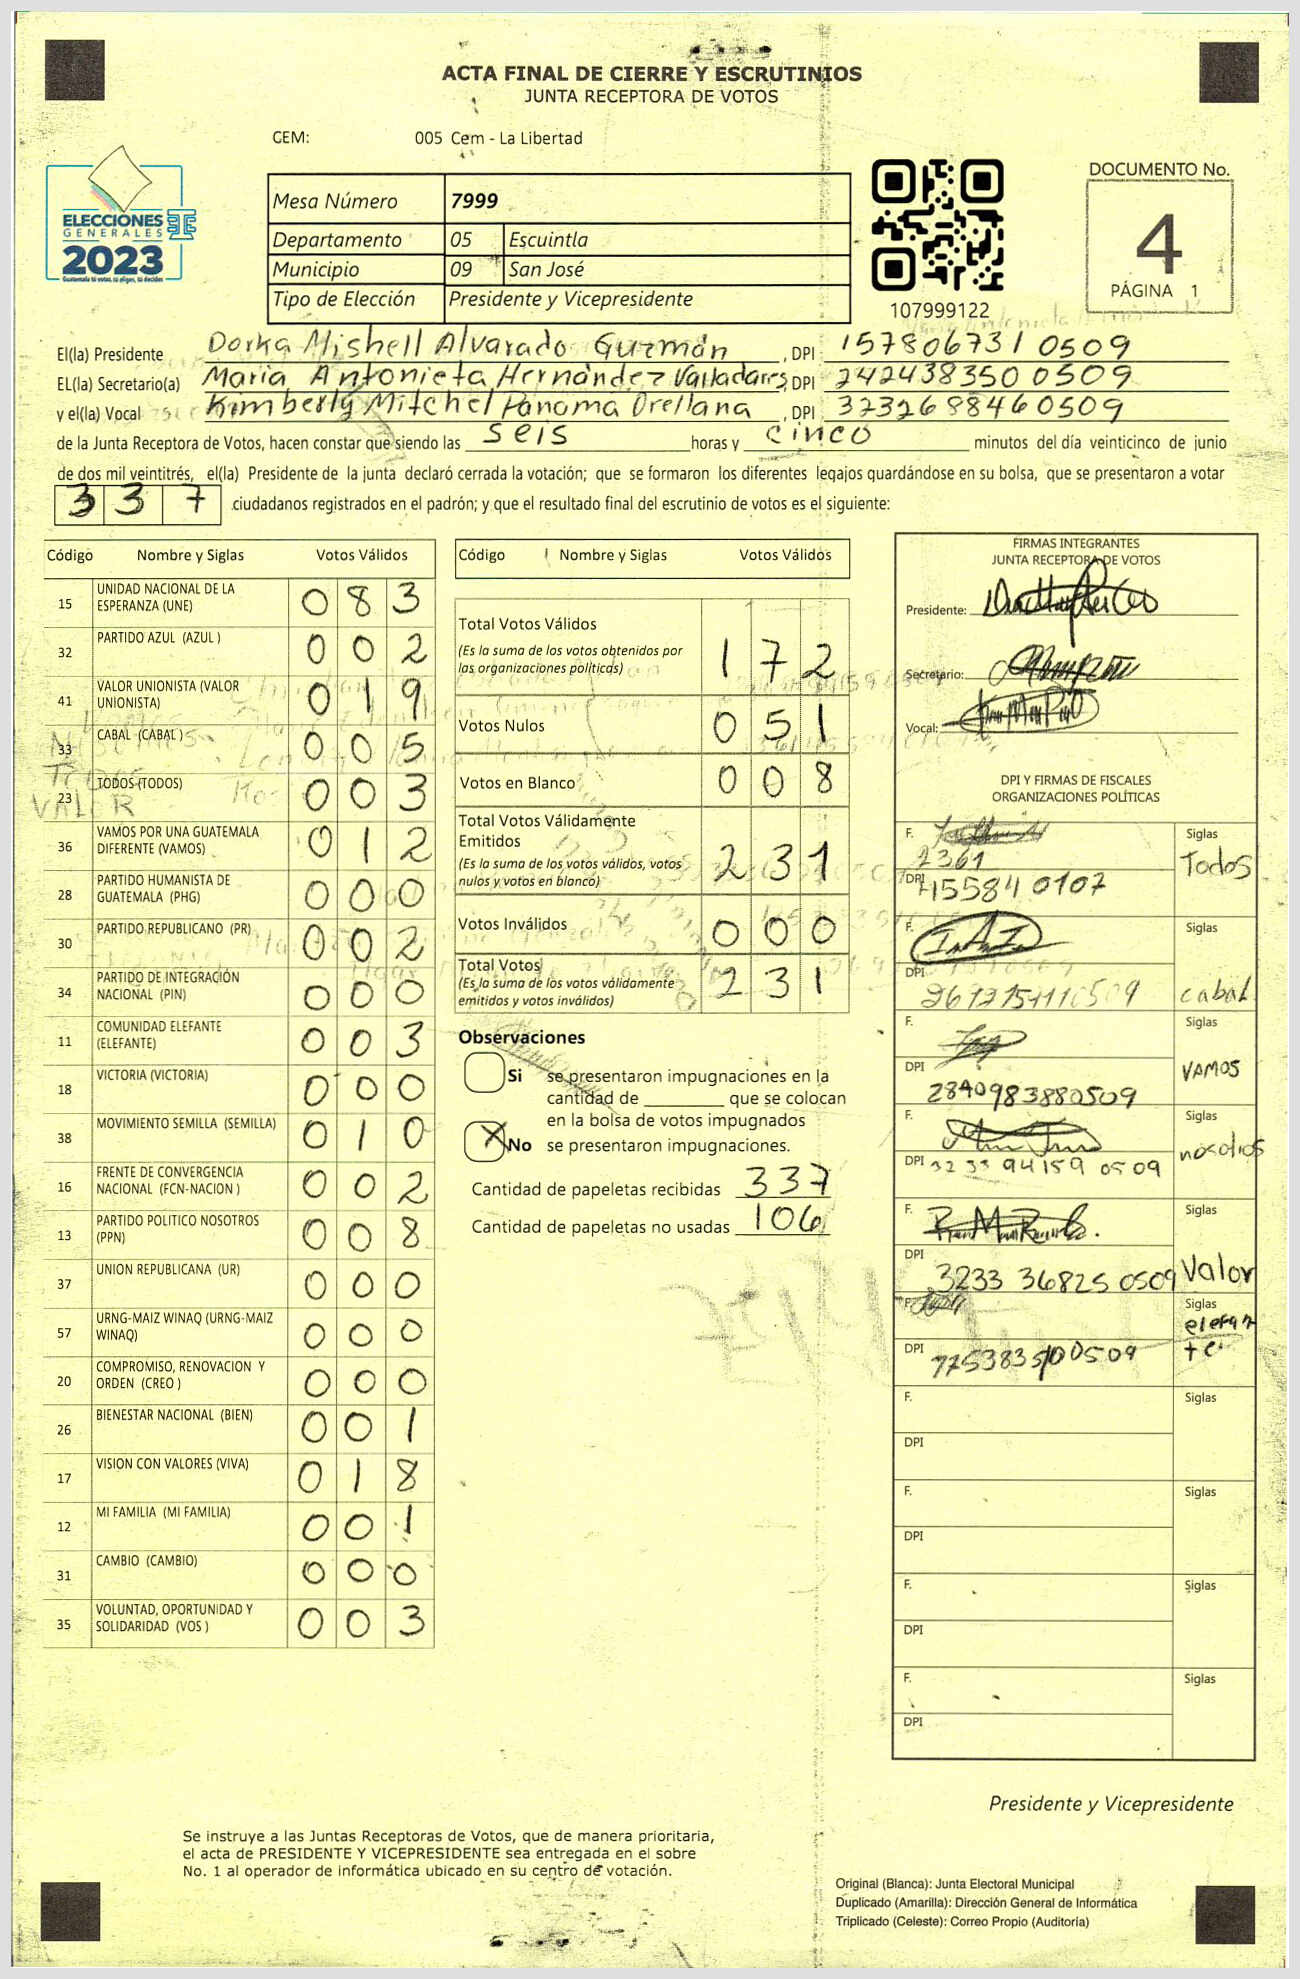 ACTA FINAL DE CIERRE Y ESCRUTINIOS
JUNTA RECEPTORA DE VOTOS
CEM: 005 Cem - La Libertad
ELECCIONES
GENERALES
2023
Guatemala tú votas, tú eliges, tú decides
Mesa Número 7999
Departamento 05 Escuintla
Municipio 09 San José
Tipo de Elección Presidente y Vicepresidente
107999122
DOCUMENTO No.
4
PÁGINA 1
El(la) Presidente Dorka Mishell Alvarado Guzmán, DPI 157806731 0509
EL(la) Secretario(a) Maria Antonieta Hernández Valladares, DPI 242438350 0509
y el(la) Vocal Kimberly Mitchel Panama Orellana, DPI 373268846 0509
de la Junta Receptora de Votos, hacen constar que siendo las seis horas y cinco minutos del día veinticinco de junio
de dos mil veintitrés, el(la) Presidente de la junta declaró cerrada la votación; que se formaron los diferentes legajos guardándose en su bolsa, que se presentaron a votar
337 ciudadanos registrados en el padrón; y que el resultado final del escrutinio de votos es el siguiente:
Código Nombre y Siglas Votos Válidos
15 UNIDAD NACIONAL DE LA ESPERANZA (UNE) 083
32 PARTIDO AZUL (AZUL ) 002
41 VALOR UNIONISTA (VALOR UNIONISTA) 019
33 CABAL (CABAL ) 005
23 TODOS (TODOS) 003
36 VAMOS POR UNA GUATEMALA DIFERENTE (VAMOS) 012
28 PARTIDO HUMANISTA DE GUATEMALA (PHG) 000
30 PARTIDO REPUBLICANO (PR) 002
34 PARTIDO DE INTEGRACIÓN NACIONAL (PIN) 000
11 COMUNIDAD ELEFANTE (ELEFANTE) 003
18 VICTORIA (VICTORIA) 000
38 MOVIMIENTO SEMILLA (SEMILLA) 010
16 FRENTE DE CONVERGENCIA NACIONAL (FCN-NACION ) 002
13 PARTIDO POLITICO NOSOTROS (PPN) 008
37 UNION REPUBLICANA (UR) 000
57 URNG-MAIZ WINAQ (URNG-MAIZ WINAQ) 000
20 COMPROMISO, RENOVACION Y ORDEN (CREO ) 000
26 BIENESTAR NACIONAL (BIEN) 001
17 VISION CON VALORES (VIVA) 018
12 MI FAMILIA (MI FAMILIA) 001
31 CAMBIO (CAMBIO) 000
35 VOLUNTAD, OPORTUNIDAD Y SOLIDARIDAD (VOS ) 003
Código Nombre y Siglas Votos Válidos
Total Votos Válidos 172
(Es la suma de los votos obtenidos por
las organizaciones políticas)
Votos Nulos 051
Votos en Blanco 008
Total Votos Válidamente
Emitidos 231
(Es la suma de los votos válidos, votos
nulos y votos en blanco)
Votos Inválidos 000
Total Votos 231
(Es la suma de los votos válidamente
emitidos y votos inválidos)
Observaciones
Si se presentaron impugnaciones en la
cantidad de ________ que se colocan
en la bolsa de votos impugnados
X No se presentaron impugnaciones.
Cantidad de papeletas recibidas 337
Cantidad de papeletas no usadas 106
FIRMAS INTEGRANTES
JUNTA RECEPTORA DE VOTOS
Presidente:
Secretario:
Vocal:
DPI Y FIRMAS DE FISCALES
ORGANIZACIONES POLÍTICAS
F. Siglas
2361 Todos
DPI 15584 0107
F. Siglas
DPI cabal
F. Siglas
DPI 2840983880509 VAMOS
F. Siglas
DPI 3233 94159 0509 nosotros
F. Siglas
DPI 3233 36825 0509 Valor
F. Siglas
elefan
DPI te
F. Siglas
DPI
F. Siglas
DPI
F. Siglas
DPI
F. Siglas
DPI
Presidente y Vicepresidente
Se instruye a las Juntas Receptoras de Votos, que de manera prioritaria,
el acta de PRESIDENTE Y VICEPRESIDENTE sea entregada en el sobre
No. 1 al operador de informática ubicado en su centro de votación.
Original (Blanca): Junta Electoral Municipal
Duplicado (Amarilla): Dirección General de Informática
Triplicado (Celeste): Correo Propio (Auditoría)